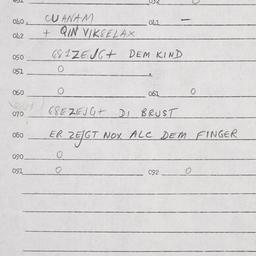 031 032 0
040. CUANAM 041 -
042 + QIN VIKSELAX
050 GSIZEJGT DEM KIND
051 0
060 0 061 0
070 GSEZEJGT DI BRUST
080 ER ZEJGT NOX ALC DEM FINGER
090 0
091 0 092 0